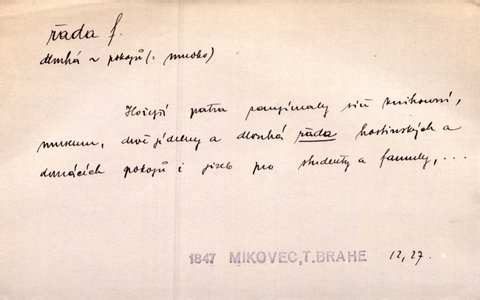 řada f.
dlouhá ~ pokojů (: mnoho)
Hořejší patra zaujímaly síň knihovní,
museum, dvě jídelny a dlouhá řada hostinských a
domácích pokojů i jizeb pro studenty a famuly, ...
1847 MIKOVEC, T. BRAHE 12, 27.